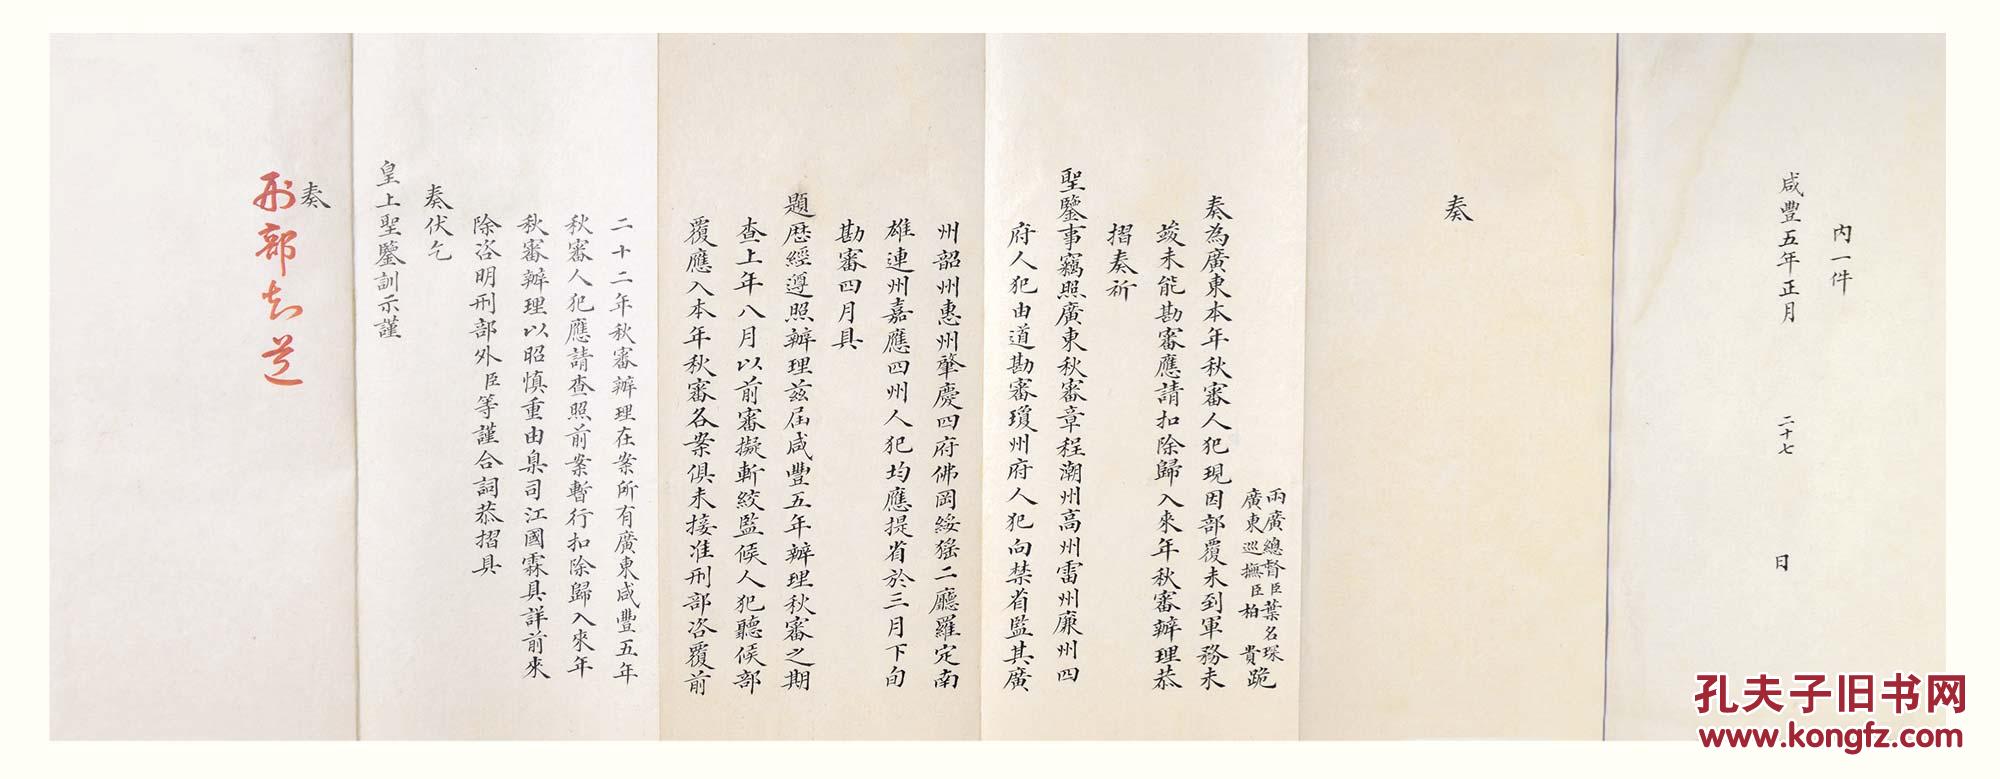 内一件
咸豐五年正月 二十七 日
奏
兩廣總督臣葉名琛
廣東巡撫臣柏 貴跪
奏為廣東本年秋審人犯現因部覆未到軍務未
竣未能勘審應請扣除歸入來年秋審辦理恭
摺奏祈
聖鑒事竊照廣東秋審章程潮州高州雷州廉州四
府人犯由道勘審瓊州府人犯向禁省監其廣
州韶州惠州肇慶四府佛岡綏猺二廳羅定南
雄連州嘉應四州人犯均應提省於三月下旬
勘審四月具
題歷經遵照辦理茲屆咸豐五年辦理秋審之期
查上年八月以前審擬斬絞監候人犯聽候部
覆應入本年秋審各案俱未接准刑部咨覆前
二十二年秋審辦理在案所有廣東咸豐五年
秋審人犯應請查照前案暫行扣除歸入來年
秋審辦理以昭慎重由臬司江國霖具詳前來
除咨明刑部外臣等謹合詞恭摺具
奏伏乞
皇上聖鑒訓示謹
奏
刑部知道
孔夫子旧书网
www.kongfz.com